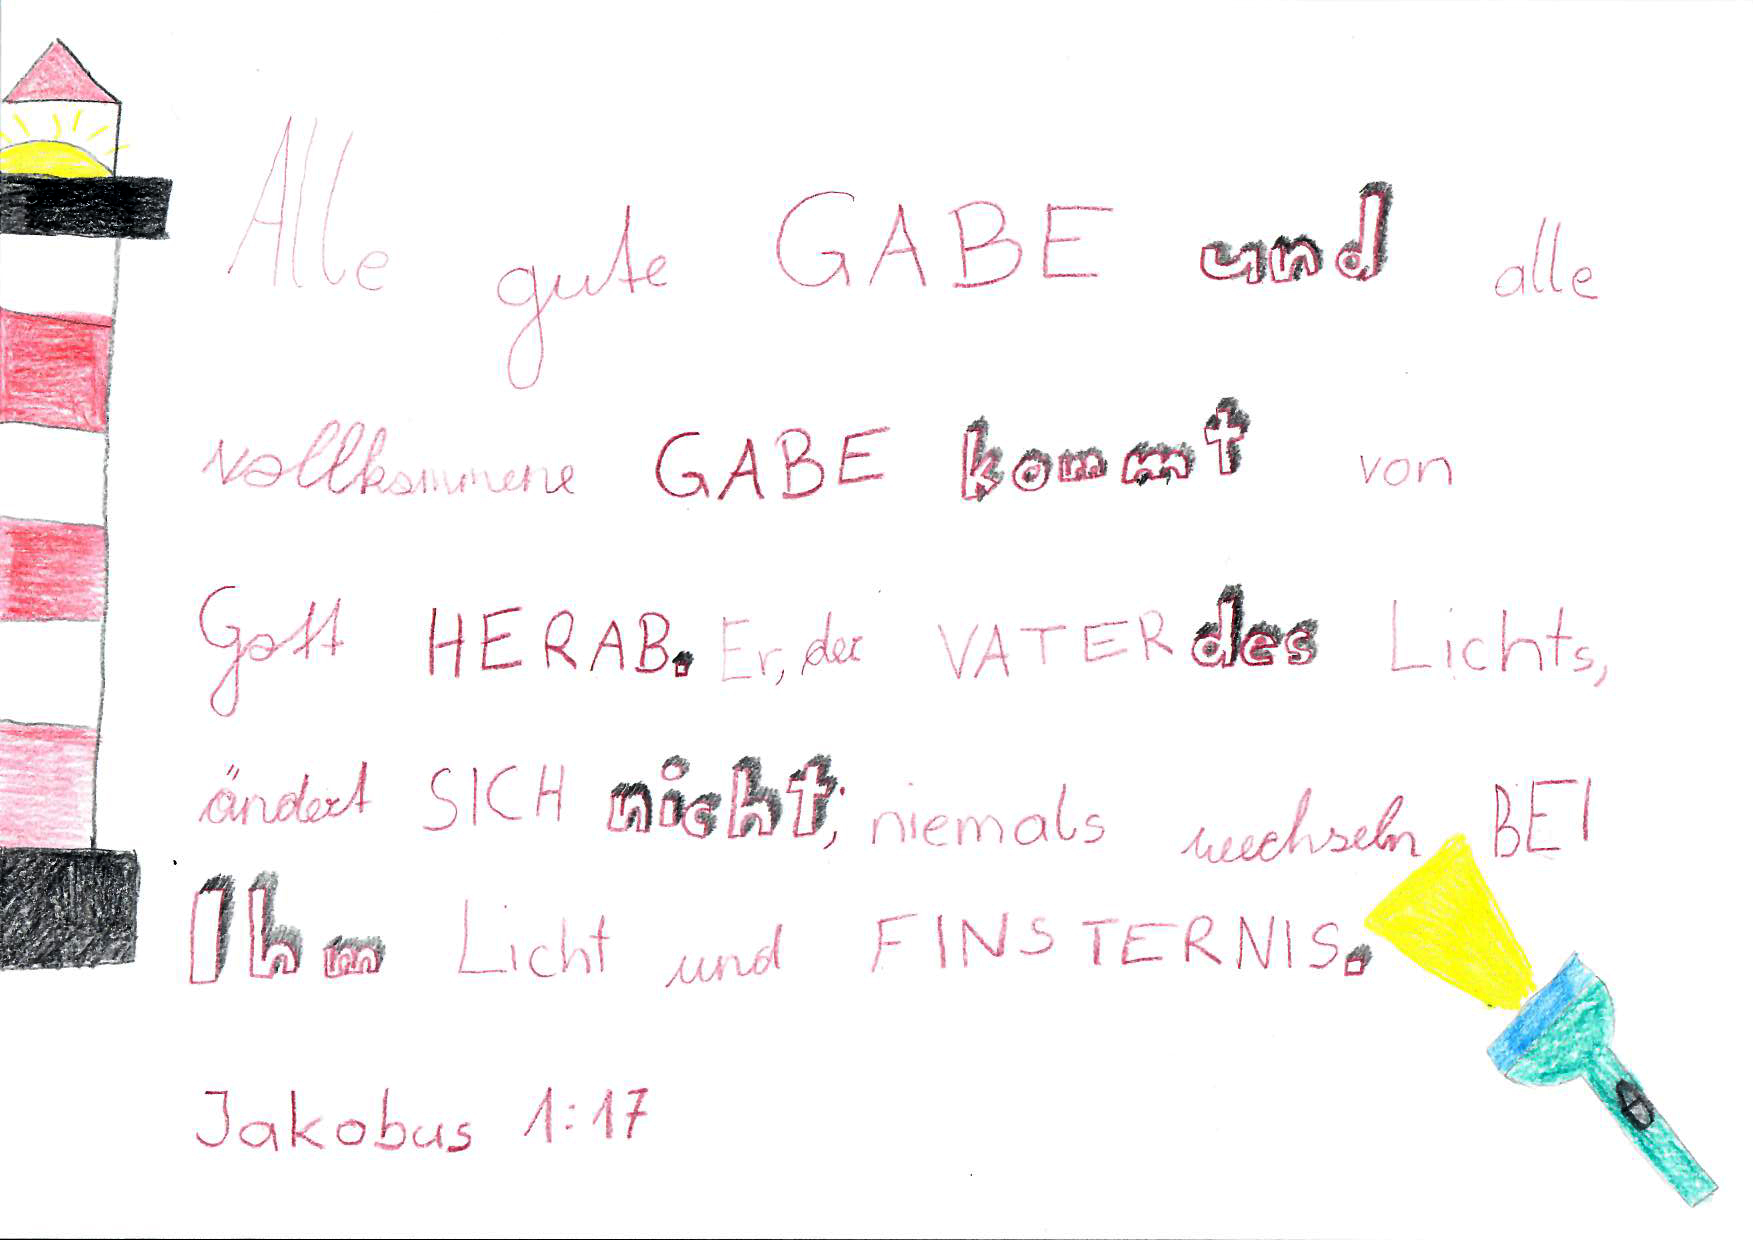 Alle gute GABE und alle
vollkommene GABE kommt von
Gott HERAB. Er, der VATER des Lichts,
ändert SICH nicht; niemals wechseln BEI
Ihm Licht und FINSTERNIS.
Jakobus 1:17